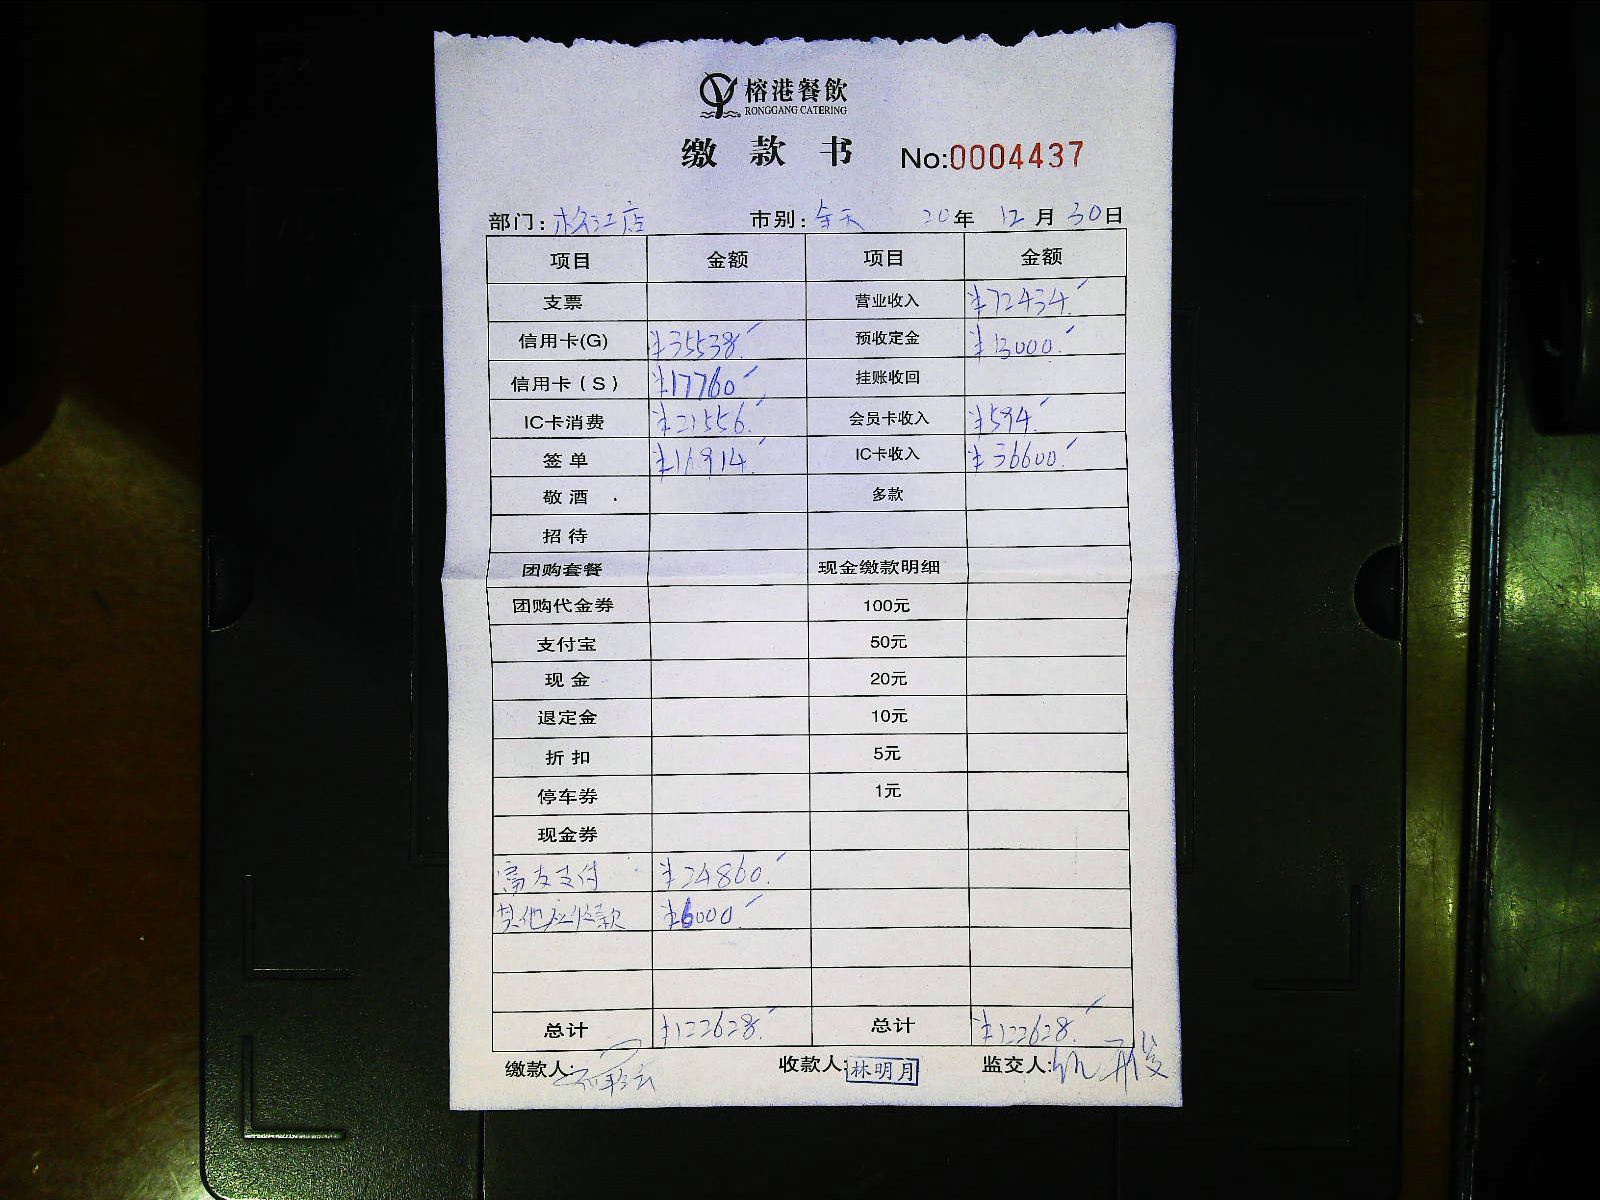 榕港餐飲
RONGGANG CATERING
缴款书 No:0004437
部门: 松江店 市别: 全天 20年 12月 30日
项目 金额 项目 金额
支票 营业收入 ¥72434.
信用卡(G) ¥35538. 预收定金 ¥13000.
信用卡(S) ¥17760 挂账收回
IC卡消费 ¥21556. 会员卡收入 ¥594.
签单 ¥16914. IC卡收入 ¥36600.
敬酒 多款
招待
团购套餐 现金缴款明细
团购代金券 100元
支付宝 50元
现金 20元
退定金 10元
折扣 5元
停车券 1元
现金券
富友支付 ¥24860.
其他应收款 ¥6000
总计 ¥122628. 总计 ¥122628.
缴款人: 收款人: 林明月 监交人: